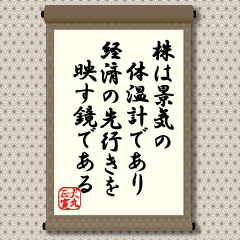 株は景気の
体温計であり
経済の先行きを
映す鏡である